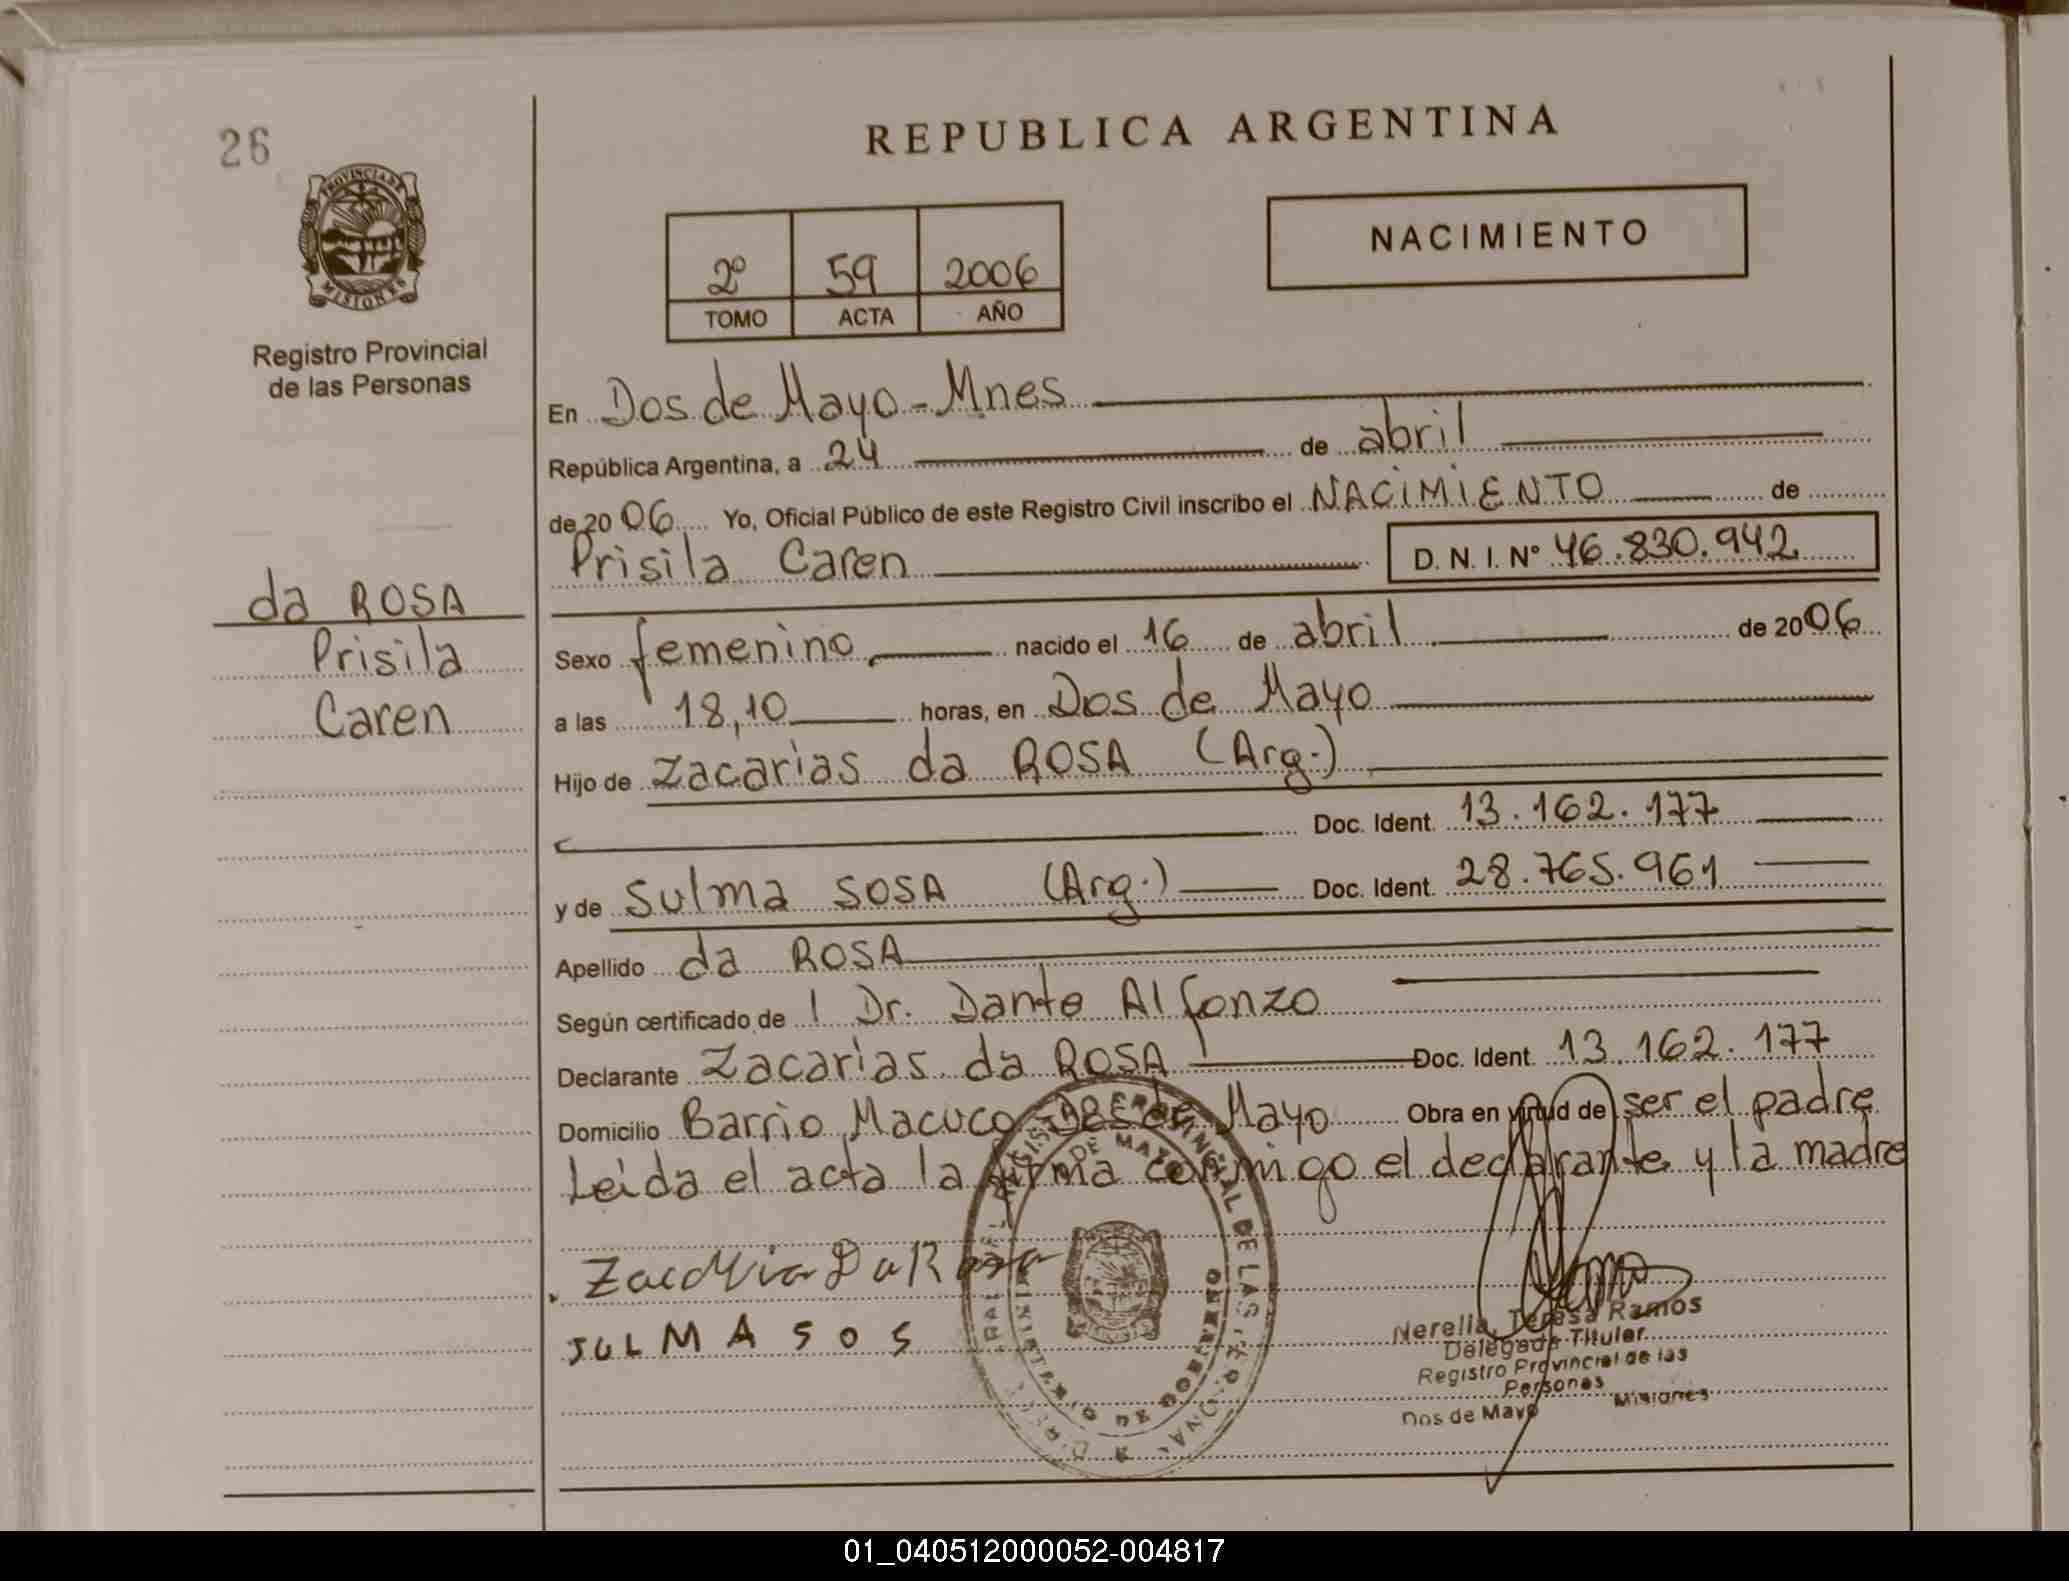 26
REPUBLICA ARGENTINA
PROVINCIA DE
MISIONES
Registro Provincial
de las Personas
NACIMIENTO
2º 59 2006
TOMO ACTA AÑO
En Dos de Mayo - Mnes
República Argentina, a 24 de abril
de 2006 Yo, Oficial Público de este Registro Civil inscribo el NACIMIENTO de
Prisila Caren D. N. I. Nº 46.830.942
da ROSA
Prisila
Caren
Sexo femenino nacido el 16 de abril de 2006
a las 18,10 horas, en Dos de Mayo
Hijo de Zacarias da ROSA (Arg.)
Doc. Ident. 13.162.177
y de Sulma SOSA (Arg.) Doc. Ident. 28.765.961
Apellido da ROSA
Según certificado de l Dr. Dante Alfonzo
Declarante Zacarias da ROSA Doc. Ident. 13.162.177
Domicilio Barrio Macuco Dos de Mayo Obra en virtud de ser el padre
Leida el acta la firma conmigo el declarante y la madre
Zacaria Da Rosa
SULMA SOS
Nerella Teresa Ramos
Delegada Titular
Registro Provincial de las
Personas
Dos de Mayo Misiones
01_040512000052-004817